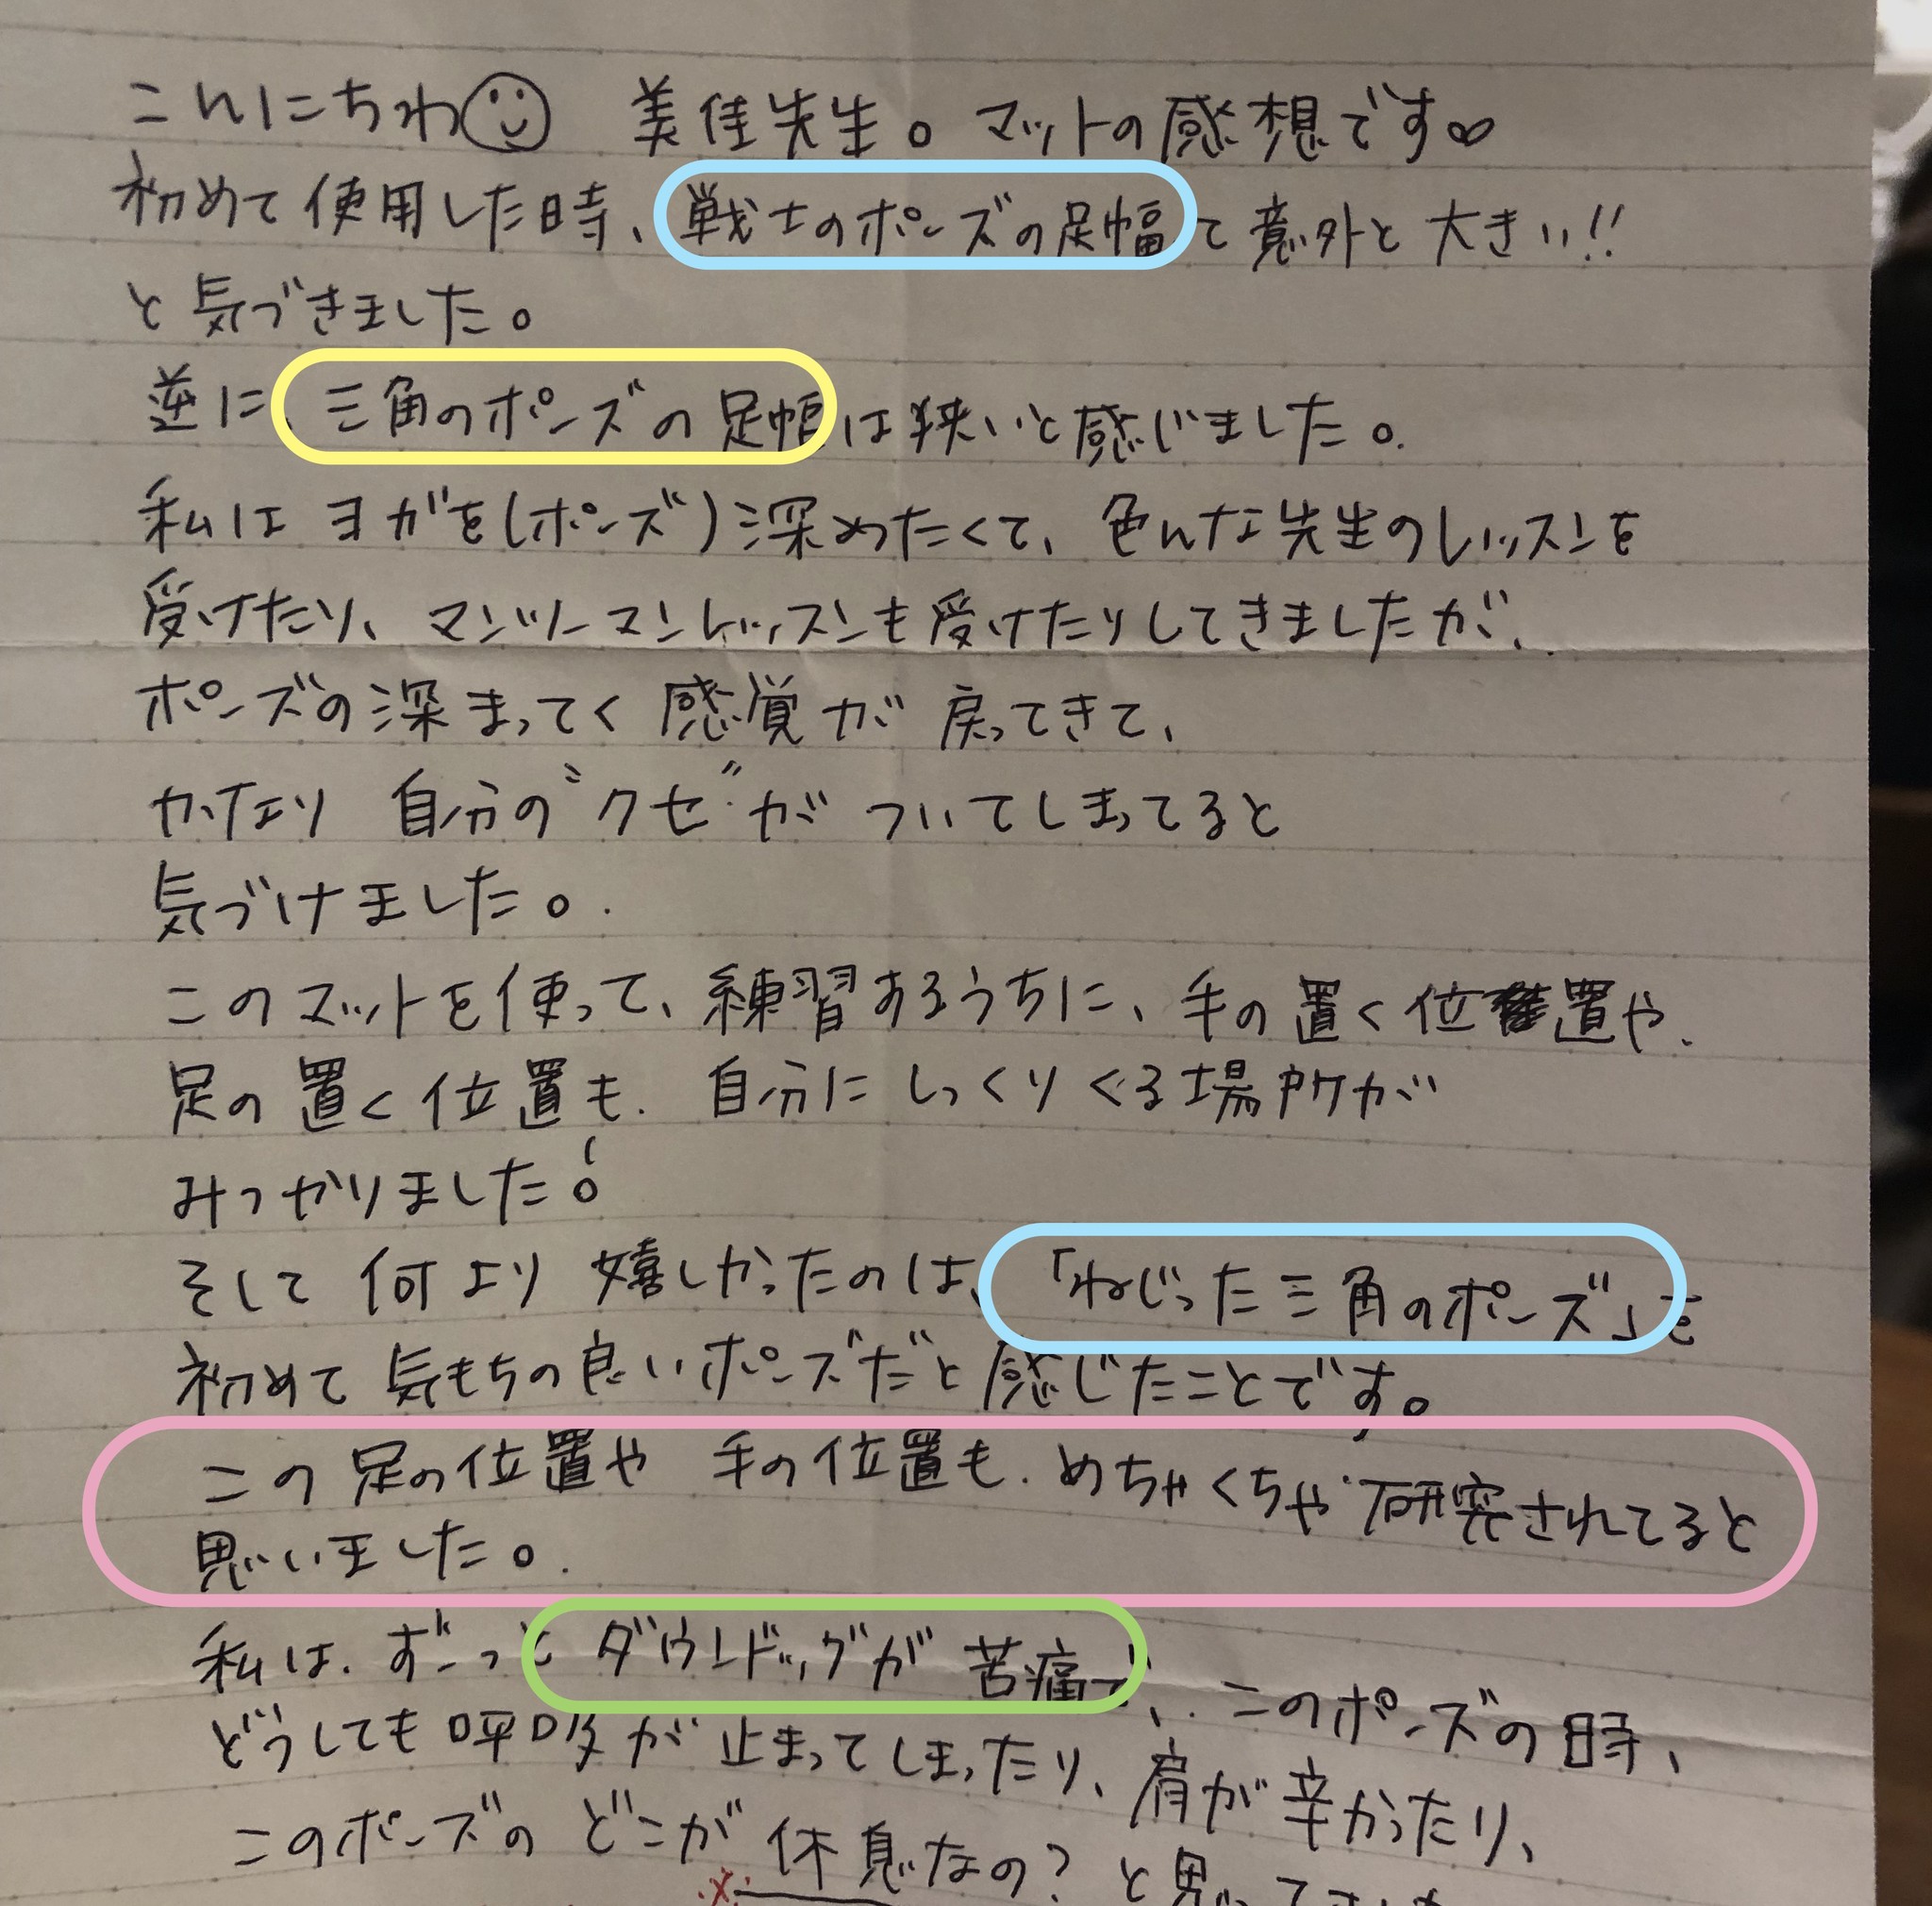 こんにちわ 美佳先生。マットの感想です♡
初めて使用した時、戦士のポーズの足幅て意外と大きい!!
と気づきました。
逆に、三角のポーズの足幅は狭いと感じました。
私はヨガを(ポーズ)深めたくて、色んな先生のレッスンを
受けたり、マンツーマンレッスンも受けたりしてきましたが、
ポーズの深まってく感覚が戻ってきて、
かなり 自分の"クセ"がついてしまってると
気づけました。
このマットを使って、練習するうちに、手の置く位置や、
足の置く位置も、自分にしっくりくる場所が
みつかりました!
そして何より嬉しかったのは、「ねじった三角のポーズ」を
初めて気もちの良いポーズだと感じたことです。
この足の位置や 手の位置も、めちゃくちゃ研究されてると
思いました。
私は、ずーっとダウンドッグが苦痛で、このポーズの時、
どうしても呼吸が止まってしまったり、肩が辛かったり、
このポーズのどこが休息なの?と思って